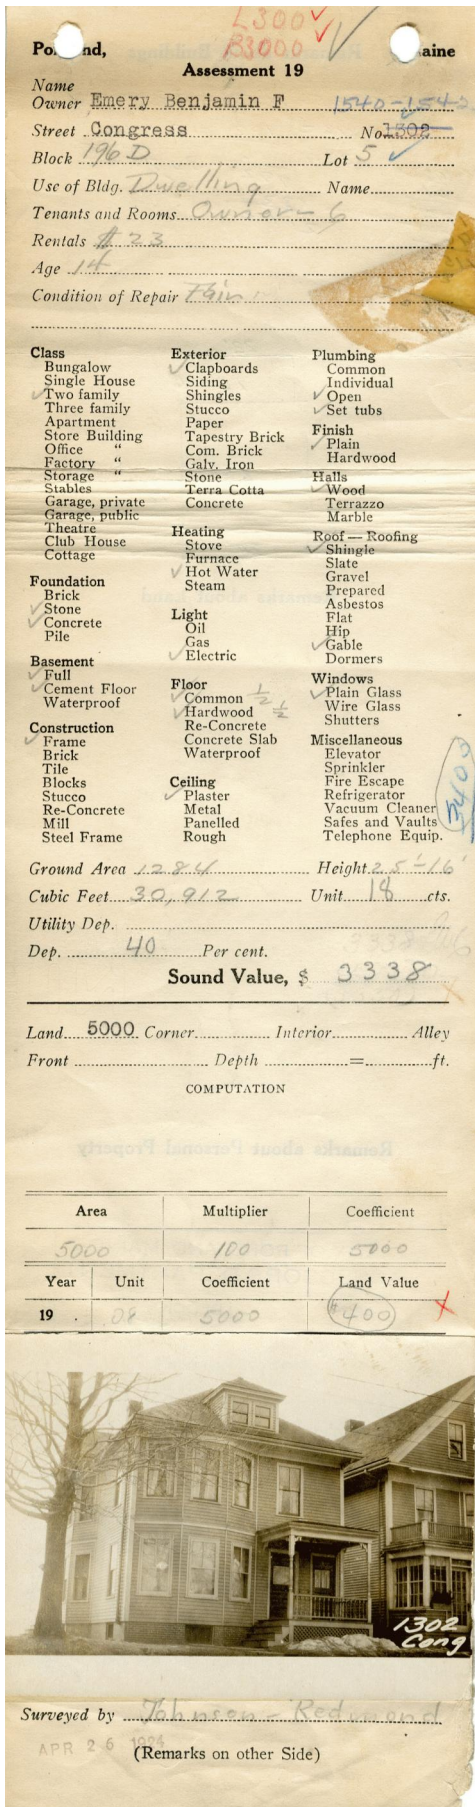 L300 ✓
B3000 ✓
Portland, Maine
Assessment 19
Name
Owner Emery Benjamin F 1540-1542
Street Congress No. 1302
Block 196 D Lot 5 ✓
Use of Bldg. Dwelling Name
Tenants and Rooms Owner - 6
Rentals $ 23
Age 14
Condition of Repair Fair
Class
Bungalow
Single House
✓ Two family
Three family
Apartment
Store Building
Office "
Factory "
Storage "
Stables
Garage, private
Garage, public
Theatre
Club House
Cottage
Foundation
Brick
✓ Stone
✓ Concrete
Pile
Basement
✓ Full
✓ Cement Floor
Waterproof
Construction
✓ Frame
Brick
Tile
Blocks
Stucco
Re-Concrete
Mill
Steel Frame
Exterior
✓ Clapboards
Siding
Shingles
Stucco
Paper
Tapestry Brick
Com. Brick
Galv. Iron
Stone
Terra Cotta
Concrete
Heating
Stove
Furnace
✓ Hot Water
Steam
Light
Oil
Gas
✓ Electric
Floor
✓ Common ½
✓ Hardwood ½
Re-Concrete
Concrete Slab
Waterproof
Ceiling
✓ Plaster
Metal
Panelled
Rough
Plumbing
Common
Individual
✓ Open
✓ Set tubs
Finish
✓ Plain
Hardwood
Halls
✓ Wood
Terrazzo
Marble
Roof — Roofing
✓ Shingle
Slate
Gravel
Prepared
Asbestos
Flat
Hip
✓ Gable
Dormers
Windows
✓ Plain Glass
Wire Glass
Shutters
Miscellaneous
Elevator
Sprinkler
Fire Escape
Refrigerator
Vacuum Cleaner
Safes and Vaults
Telephone Equip.
3400
Ground Area 1284 Height 25'-16'
Cubic Feet 30,912 Unit 18 cts.
Utility Dep.
Dep. 40 Per cent.
Sound Value, $ 3338
Land 5000 Corner Interior Alley
Front Depth = ft.
COMPUTATION
Area Multiplier Coefficient
5000 100 5000
Year Unit Coefficient Land Value
19 . .08 5000 $400
1302
Cong
Surveyed by Johnson - Redmond
APR 26 1924
(Remarks on other Side)